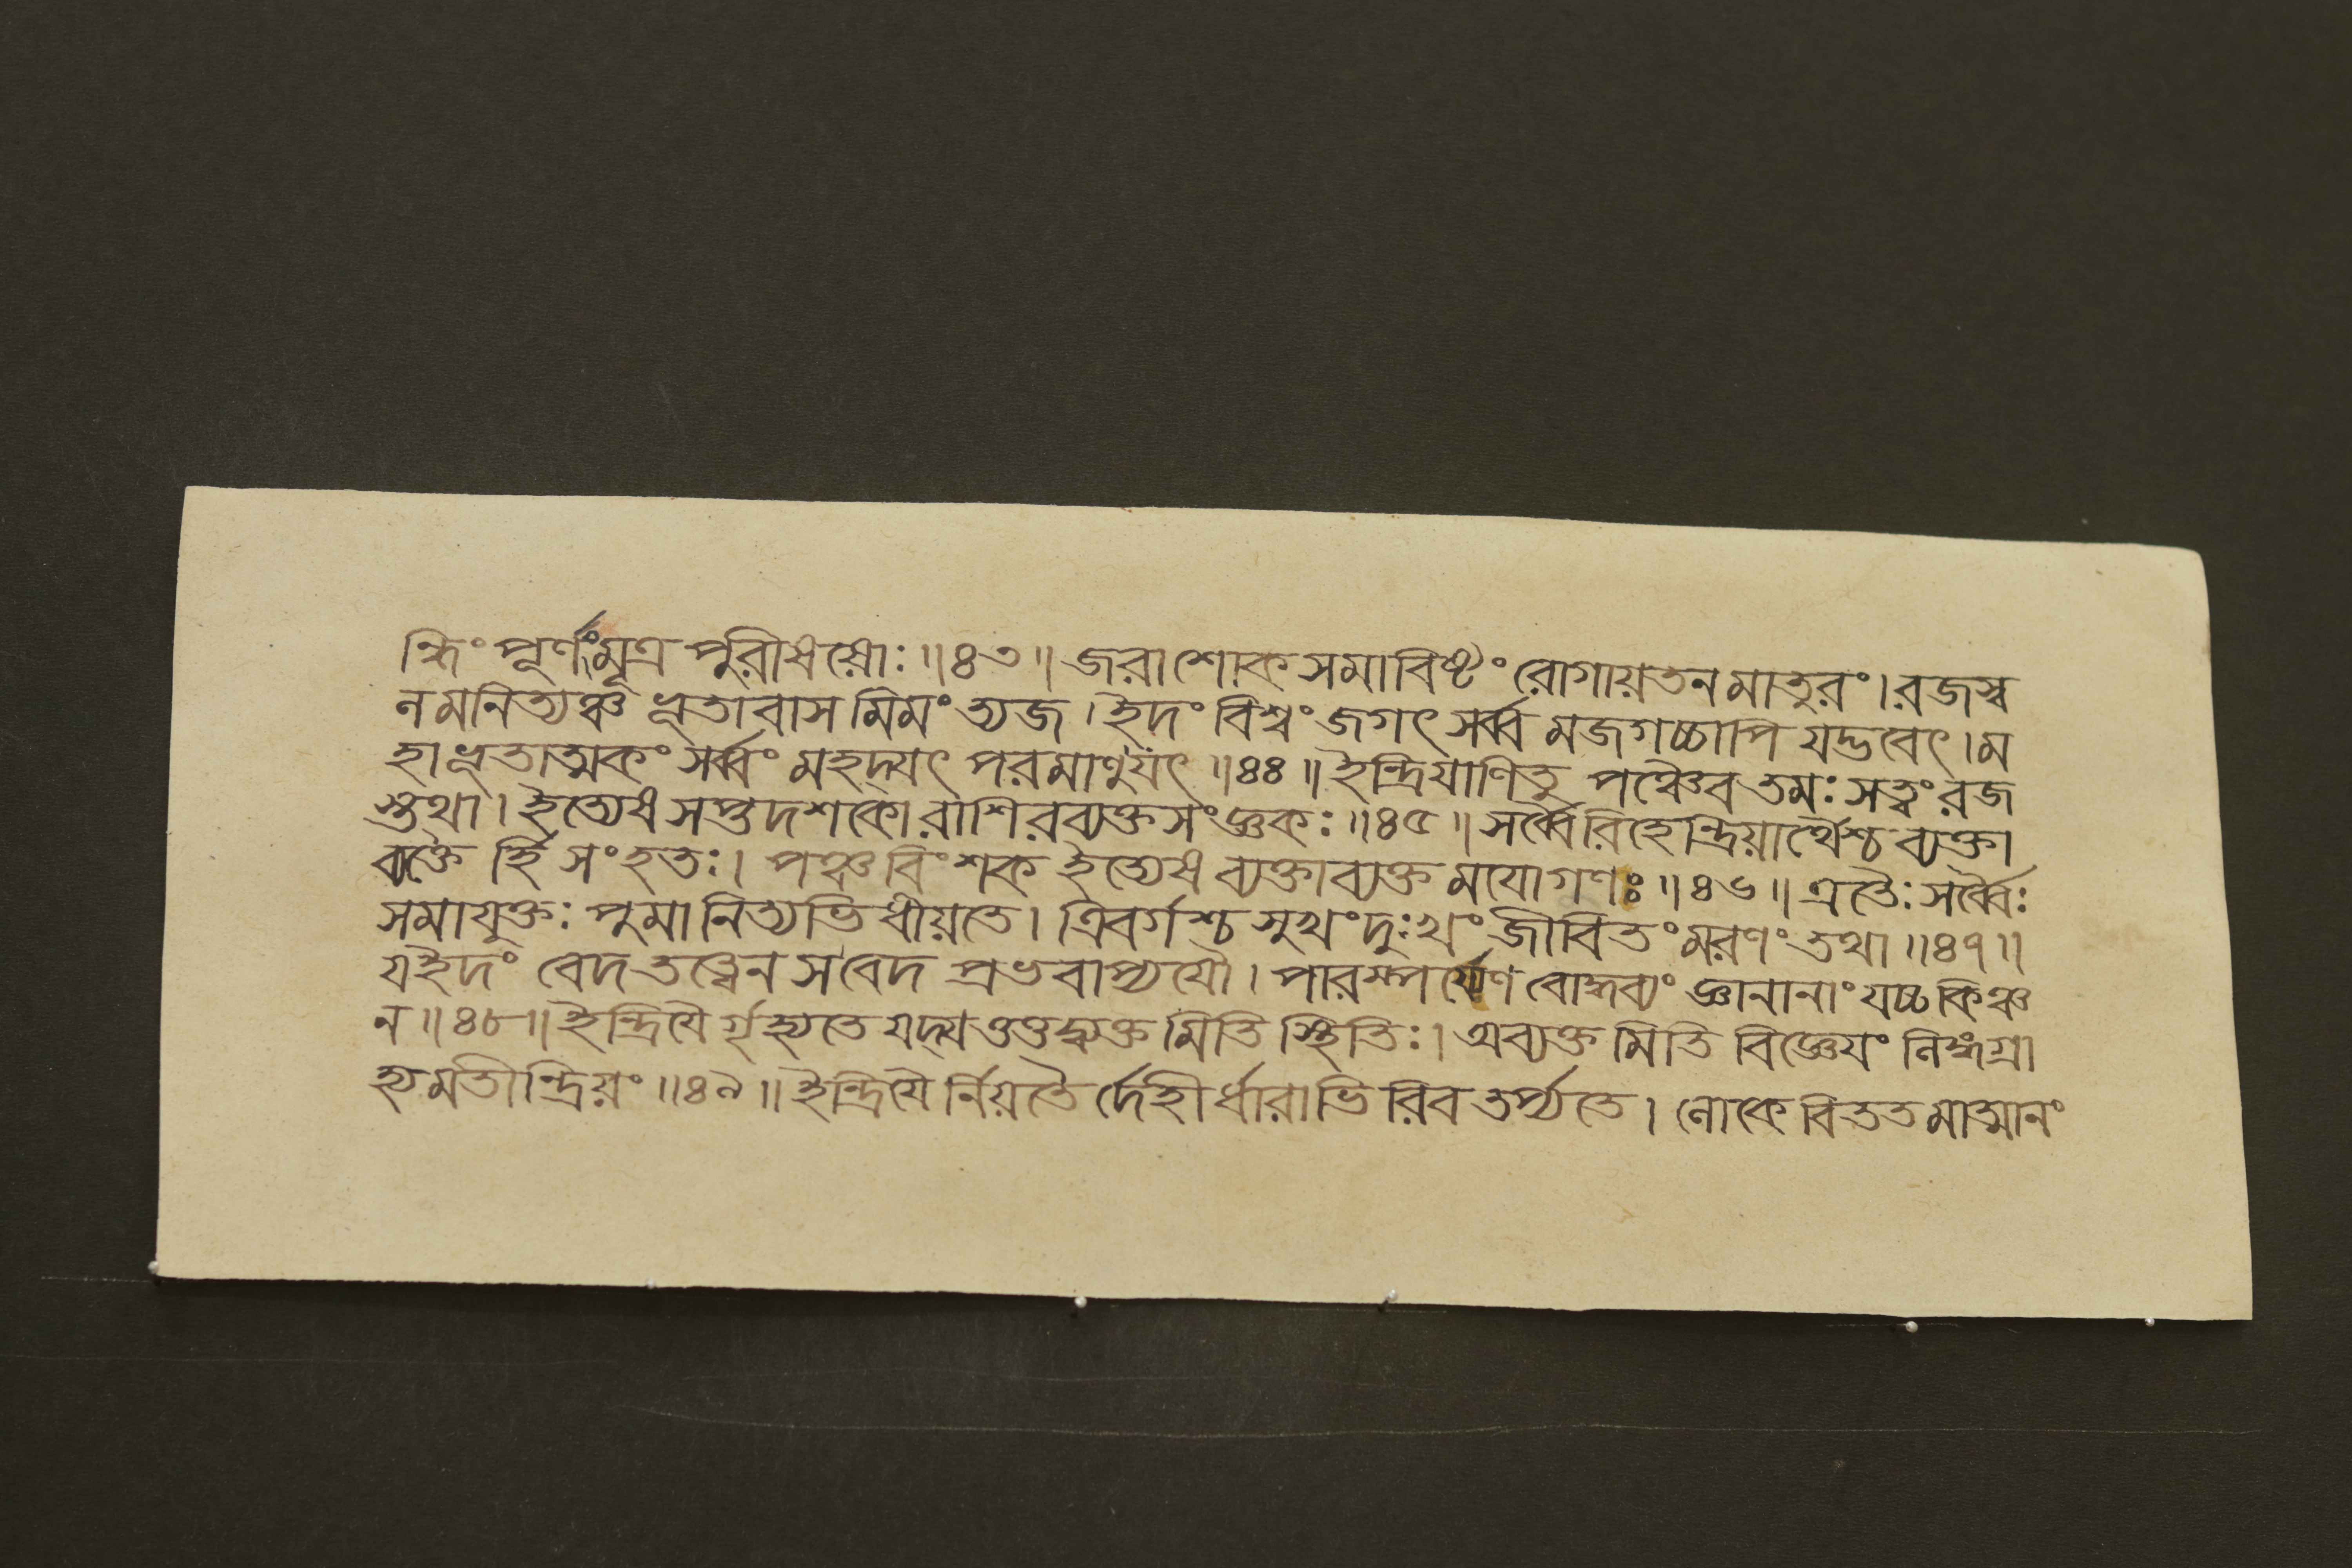 ন্ধিং পূর্ণং মূত্র পুরীষয়োঃ ॥৪৩॥ জরাশোকসমাবিষ্টং রোগায়তনমাতুরং। রজস্ব
নমনিত্যঞ্চ ভূতাবাসমিমং ত্যজ। ইদং বিশ্বং জগৎ সর্ব্ব মজগচ্চাপি যদ্ভবেৎ। ম
হাভূতাত্মকং সর্ব্বং মহদ্যৎ পরমাণুযৎ ॥৪৪॥ ইন্দ্রিযাণিতু পঞ্চৈব তমঃ সত্ত্বং রজ
স্তথা। ইত্যেষ সপ্তদশকো রাশিরব্যক্তসংজ্ঞকঃ ॥৪৫॥ সর্ব্বৈরিহেন্দ্রিয়ার্থৈশ্চ ব্যক্তা
ব্যক্তৈ র্হি সংহতঃ। পঞ্চবিংশক ইত্যেষ ব্যক্তাব্যক্ত মযোগণঃ ॥৪৬॥ এতৈঃ সর্ব্বৈঃ
সমাযুক্তঃ পুমানিত্যভিধীয়তে। ত্রিবর্গশ্চ সুখং দুঃখং জীবিতং মরণং তথা ॥৪৭॥
যইদং বেদ তত্ত্বেন সবেদ প্রভবাপ্যযৌ। পারম্পর্য্যেণ বোদ্ধব্যং জ্ঞানানাং যচ্চ কিঞ্চ
ন ॥৪৮॥ ইন্দ্রিযৈ র্গৃহ্যতে যদ্য ত্তত্তদ্ব্যক্ত মিতি স্থিতিঃ। অব্যক্ত মিতি বিজ্ঞেযং লিঙ্গগ্রা
হ্যমতীন্দ্রিয়ং ॥৪৯॥ ইন্দ্রিযৈ র্নিয়তৈ র্দেহী র্ধারাভি রিব তর্প্যতে। লোকে বিততমাত্মানং